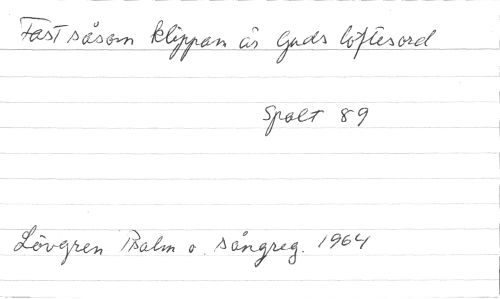 Fast såsom klippan är Guds löftesord
Spalt 89
Lövgren Psalm o. sångreg. 1964